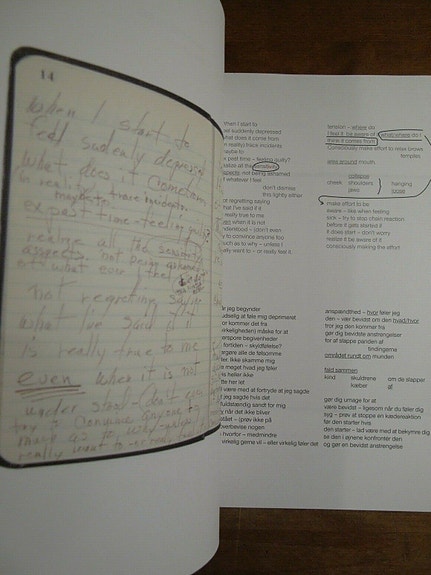 14
When I start to
feel suddenly depressed
what does it come from
in reality trace incidents
maybe to
past time-feeling
realize all the sensitivity
aspects. not being ashamed
of what ever I feel
not regretting saying
what I've said if it
is really true to me
even when it is not
understood
try to convince anyone to
really want to
when I start to
eel suddenly depressed
what does it come from
n reality trace incidents
naybe to
e past time – feeling guilty?
ealize all the sensitivity
aspects not being ashamed
f whatever I feel
don't dismiss
this lightly either
ot regretting saying
hat I've said if it
really true to me
ven when it is not
nderstood – (don't even
y to convince anyone too
uch as to why – unless I
ally want to – or really feel it.
tension – where do
I feel it, be aware of what/where do I
think it comes from
consciously make effort to relax brows
temples
area around mouth.
collapse
cheek shoulders hanging
jaws loose
make effort to be
aware – like when feeling
sink – try to stop chain reaction
before it gets started if
it does start – don't worry
realize it be aware of it
consciously making the effort
år jeg begynder
udselig at føle mig deprimeret
vor kommer det fra
irkeligheden) måske for at
erspore begivenheder
fortiden – skyldfølelse?
ergøre alle de følsomme
ler. Ikke skamme mig
e meget hvad jeg føler
is heller ikke
tte her let
være med at fortryde at jeg sagde
jeg sagde hvis det
fuldstændig sandt for mig
y når det ikke bliver
stået – (prøv ikke på
verbevise nogen
hvorfor – medmindre
virkelig gerne vil – eller virkelig føler det
anspændthed – hvor føler jeg
den – vær bevidst om den hvad/hvor
tror jeg den kommer fra
gør dig bevidste anstrengelser
for at slappe panden af
tindingerne
området rundt om munden
fald sammen
kind skuldrene om de slapper
kæber af
gør dig umage for at
være bevidst – ligesom når du føler dig
syg – prøv at stoppe en kædereaktion
før den starter hvis
den starter – lad være med at bekymre dig
se den i øjnene konfrontér den
og gør en bevidst anstrengelse